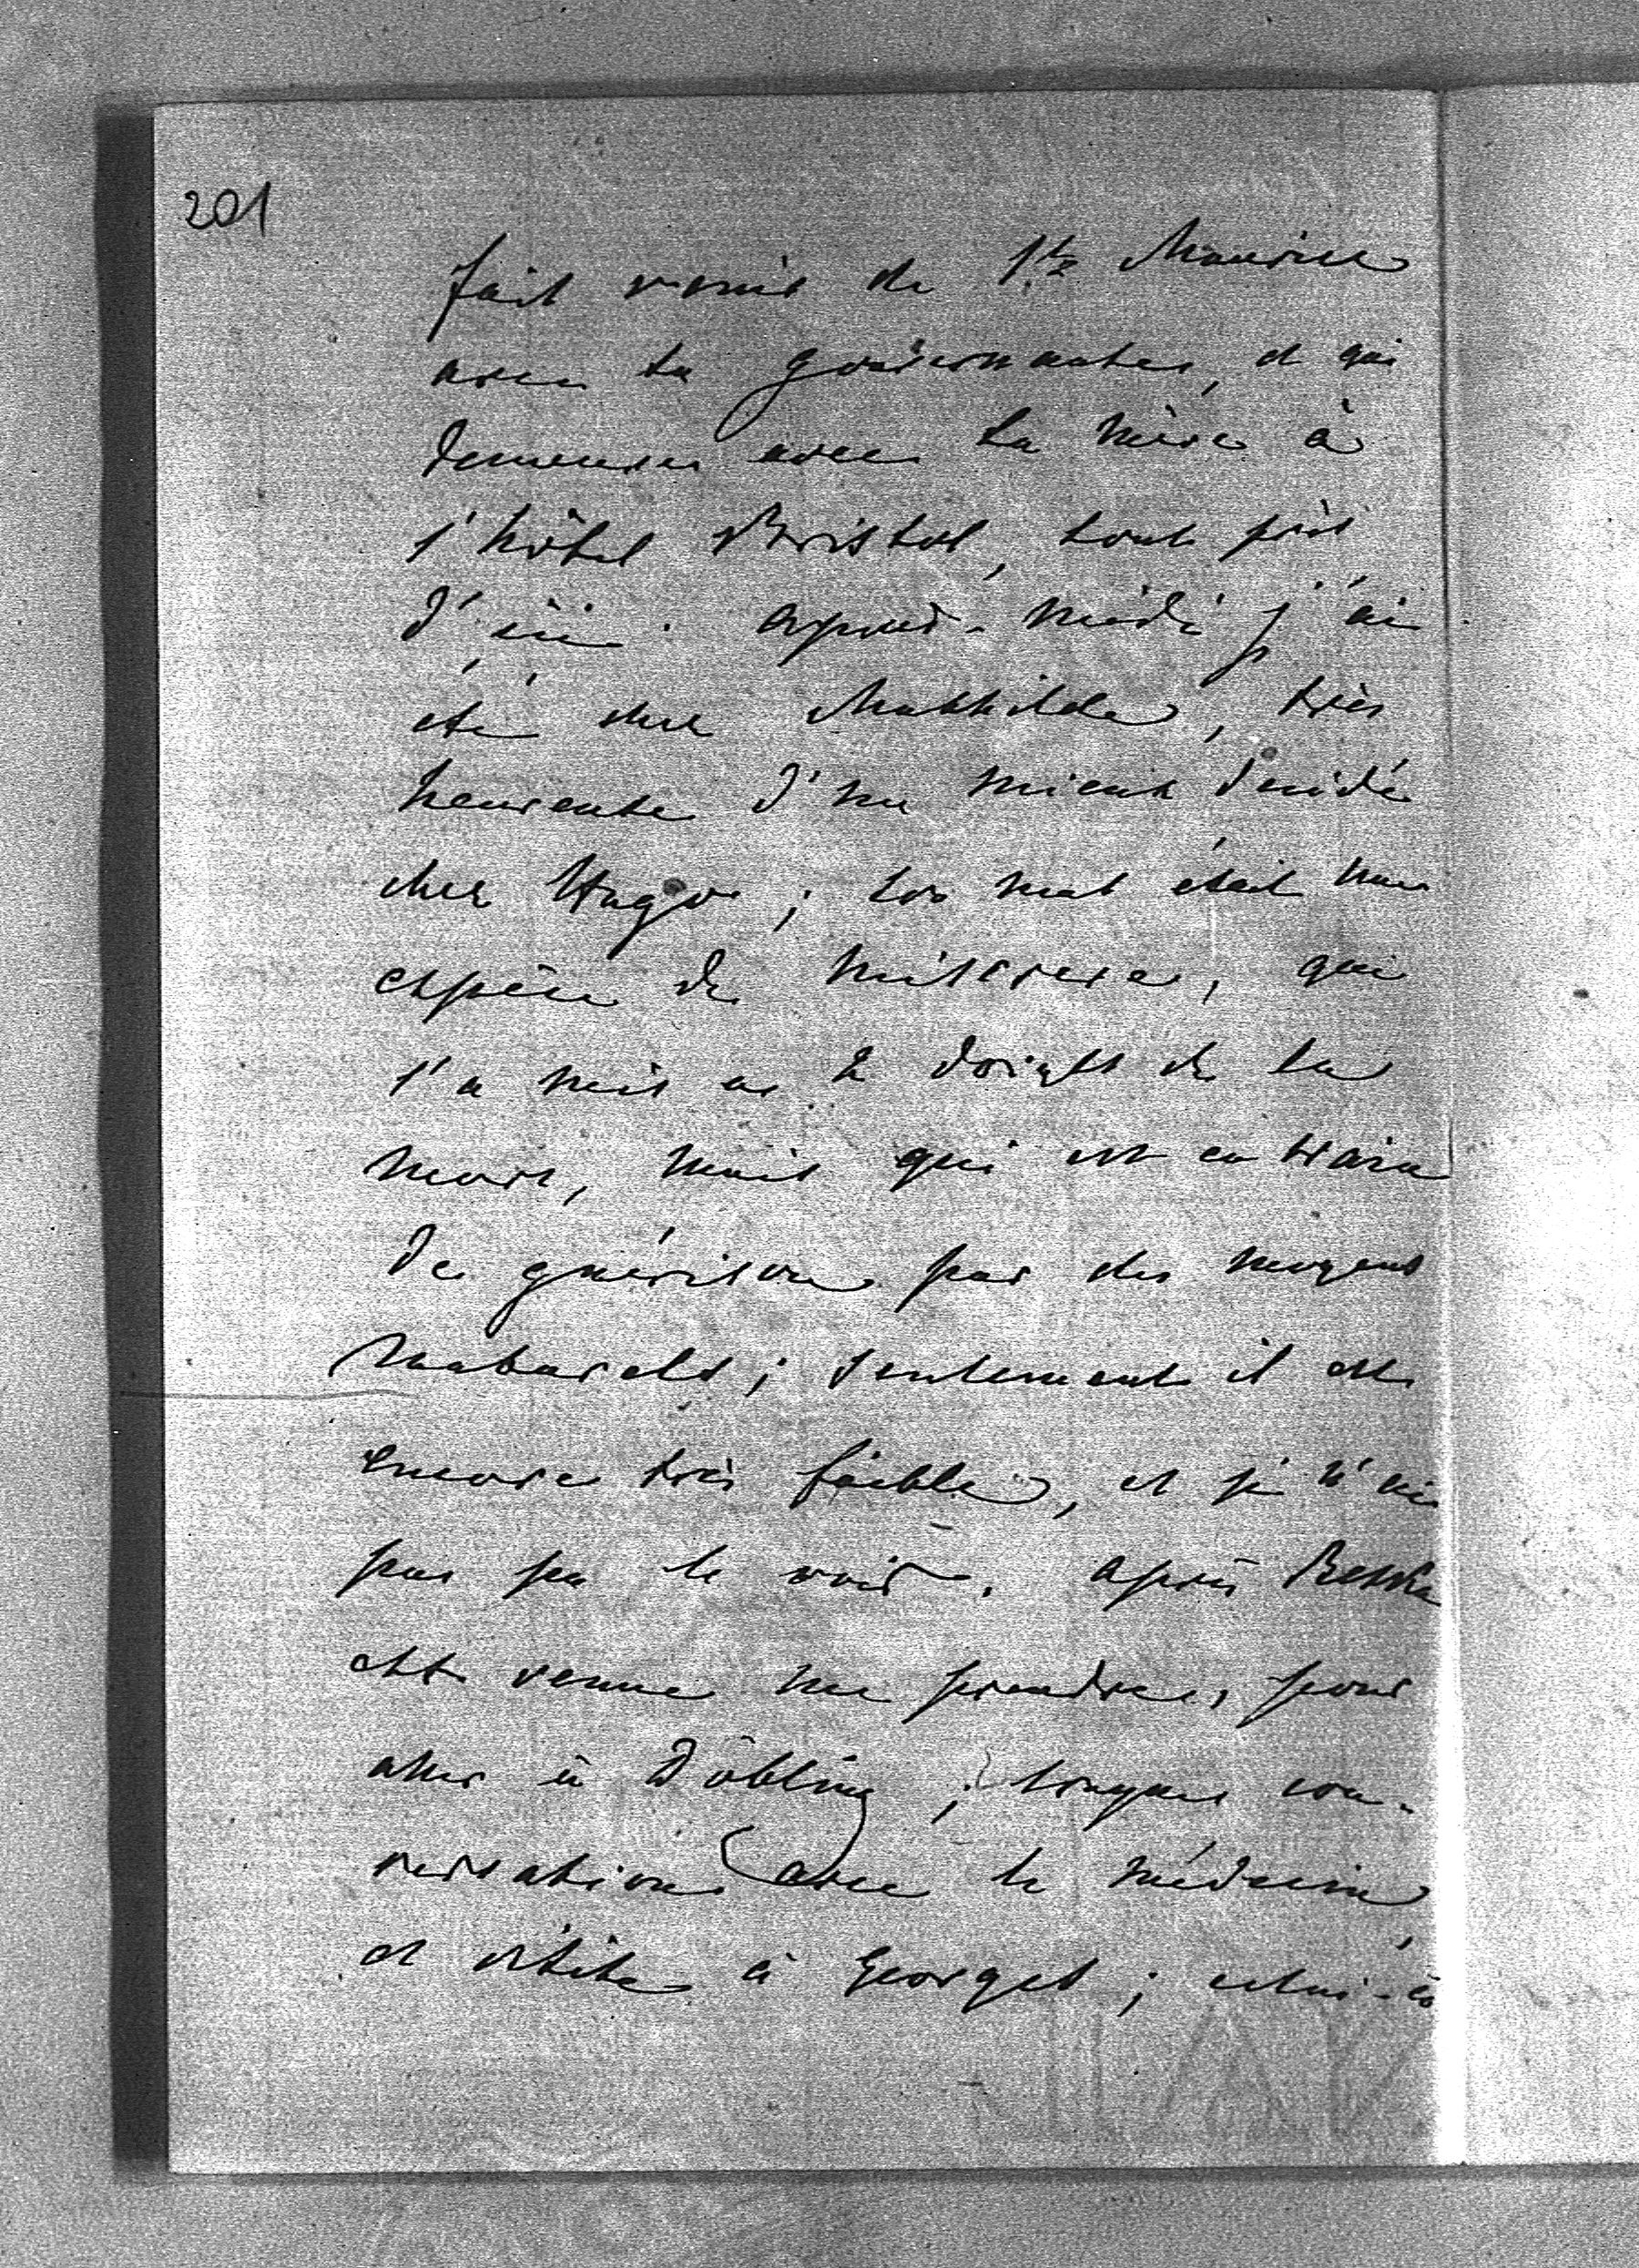 201
fait venir de St Maurice
avec sa gouvernante, et qui
demeure avec sa mère à
l'hôtel Bristol, tout près
d'ici. Après-midi j'ai
été chez Mathilde, très
heureuse d'un mieux décidé
chez Hugo; son mal était une
espèce de miserere, qui
l'a mis à 2 doigts de la
mort, mais qui est en train
de guérison par des moyens
naturels; seulement il est
encore très faible, et je n'ai
pas pu le voir. Après
est venue me prendre, pour
aller à Döbling; longue con-
versation avec le médecin
et visite à Georges; celui-ci